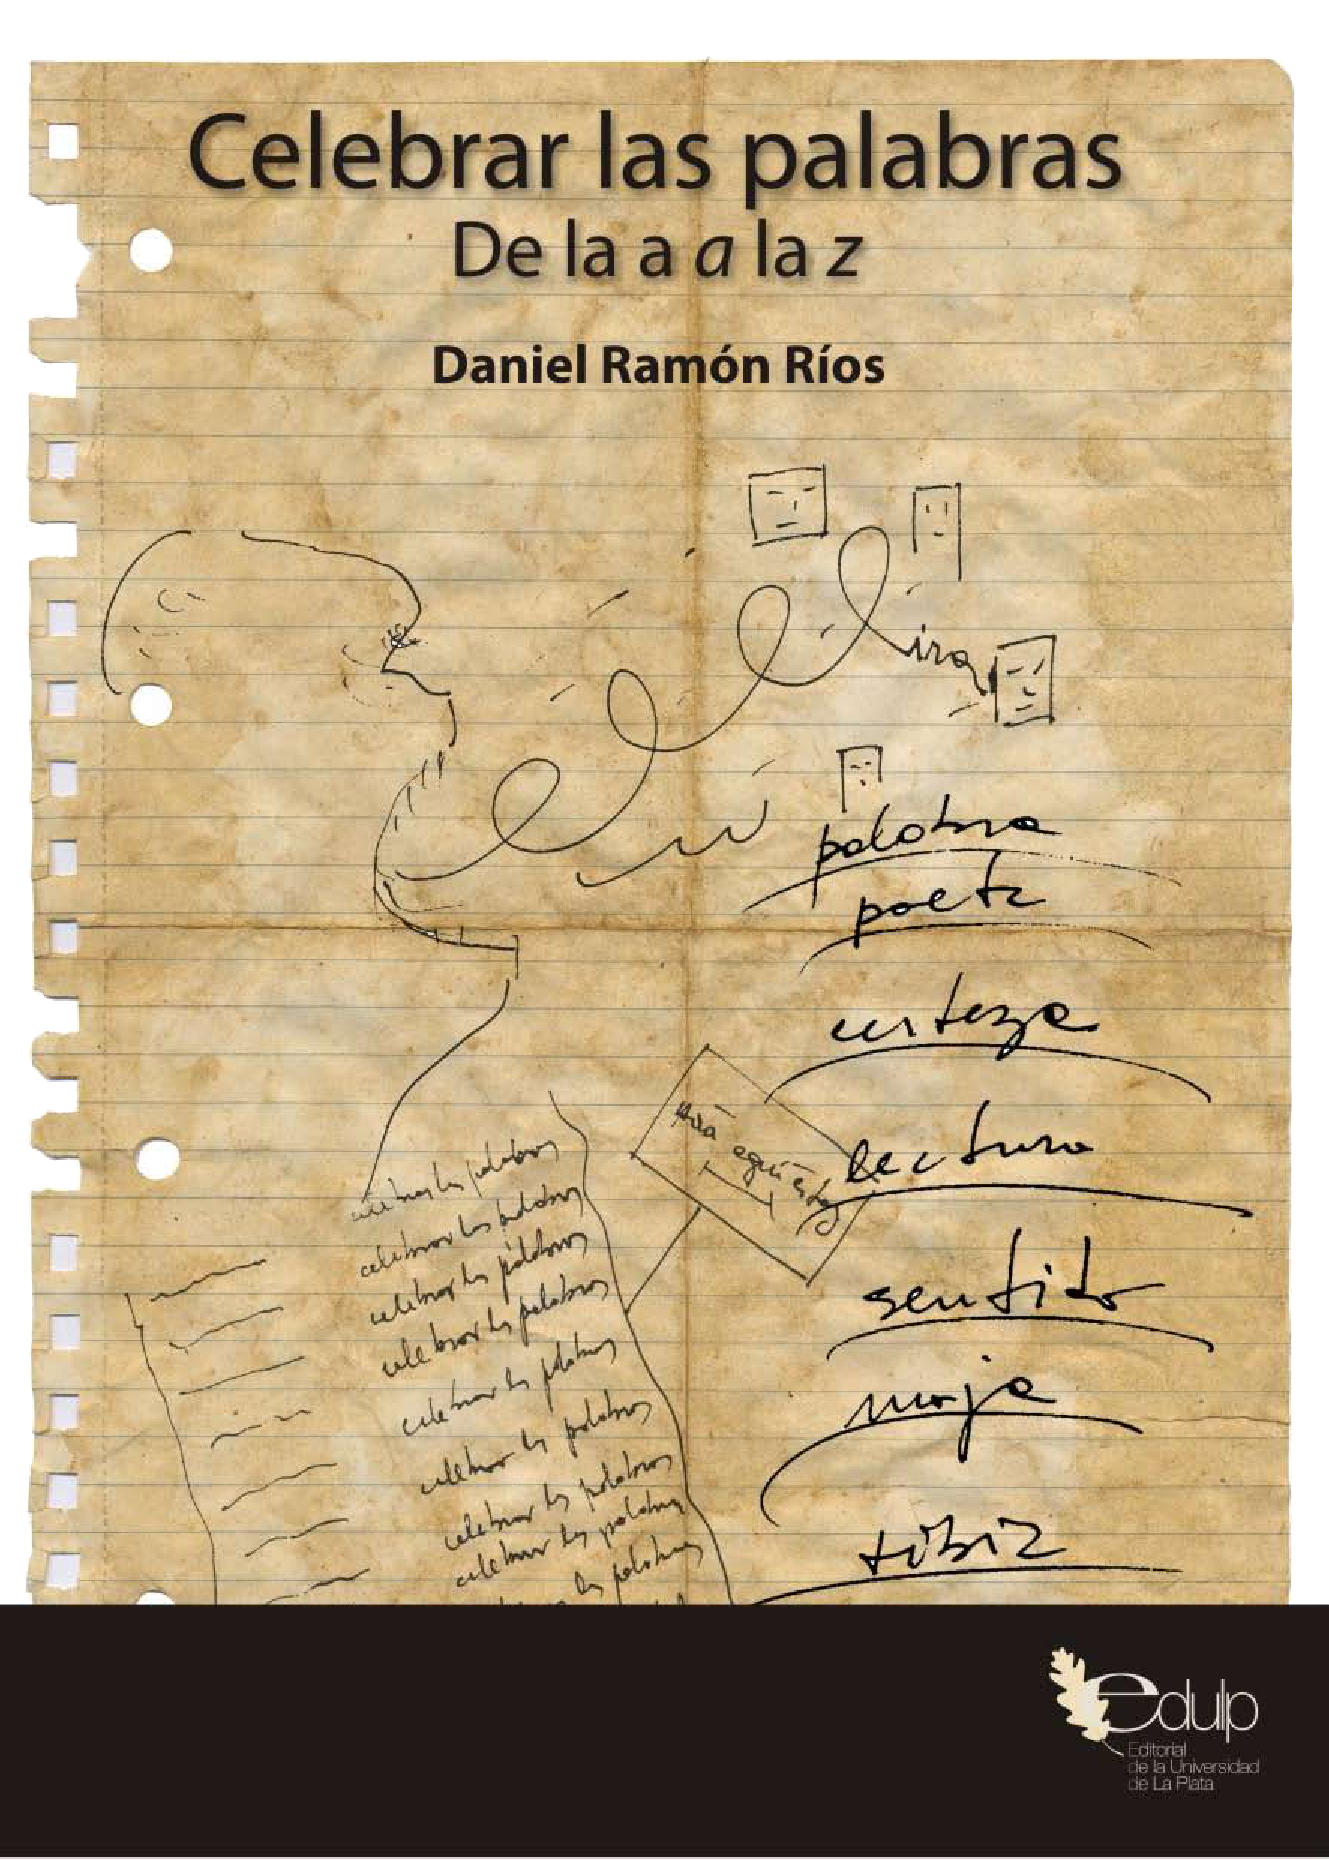 Celebrar las palabras
De la a a la z
Daniel Ramón Ríos
palabra
poeta
certeza
lectura
sentido
celebrar las palabras
celebrar las palabras
celebrar las palabras
celebrar las palabras
celebrar las palabras
celebrar las palabras
celebrar las palabras
celebrar las palabras
las palabras
edulp
Editorial
de la Universidad
de La Plata